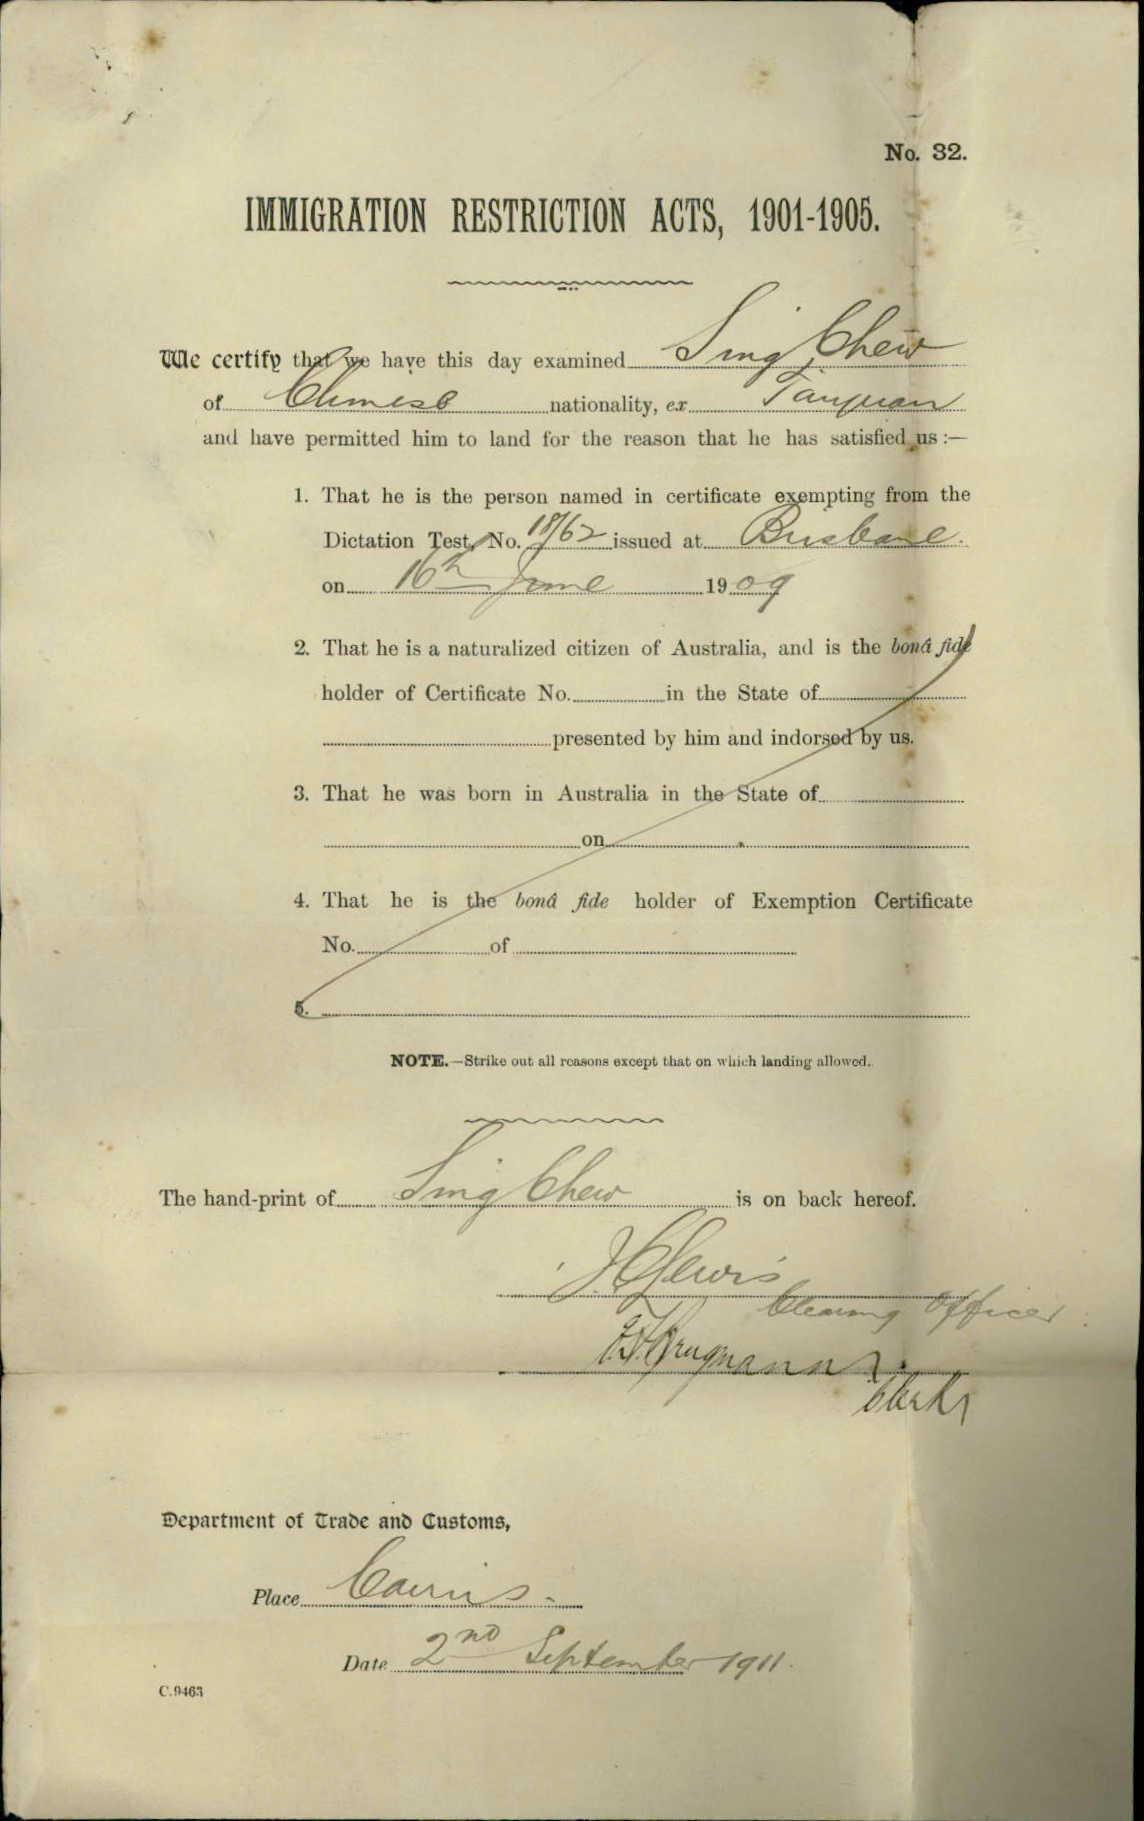 No. 32.
IMMIGRATION RESTRICTION ACTS, 1901-1905.
We certify that we have this day examined Sing Chew
of Chinese nationality, ex Taiyuan
and have permitted him to land for the reason that he has satisfied us :—
1. That he is the person named in certificate exempting from the
Dictation Test, No. 18/62 issued at Brisbane.
on 16th June 1909
2. That he is a naturalized citizen of Australia, and is the bonâ fide
holder of Certificate No. in the State of
presented by him and indorsed by us.
3. That he was born in Australia in the State of
on
4. That he is the bonâ fide holder of Exemption Certificate
No. of
5.
NOTE.—Strike out all reasons except that on which landing allowed.
The hand-print of Sing Chew is on back hereof.
Lewis
Clearing Officer
Krugmann
Clerk
Department of Trade and Customs,
Place Cairns.
Date 2nd September 1911.
C.9463